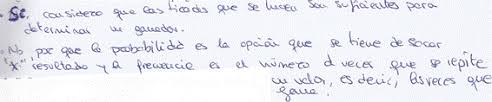 Sí, considero que las tiradas que se hacen son suficientes para
determinar un ganador.
- No, por que la probabilidad es la opción que se tiene de sacar
"x" resultado y la frecuencia es el número d veces que se repite
un valor, es decir, las veces que
gana.